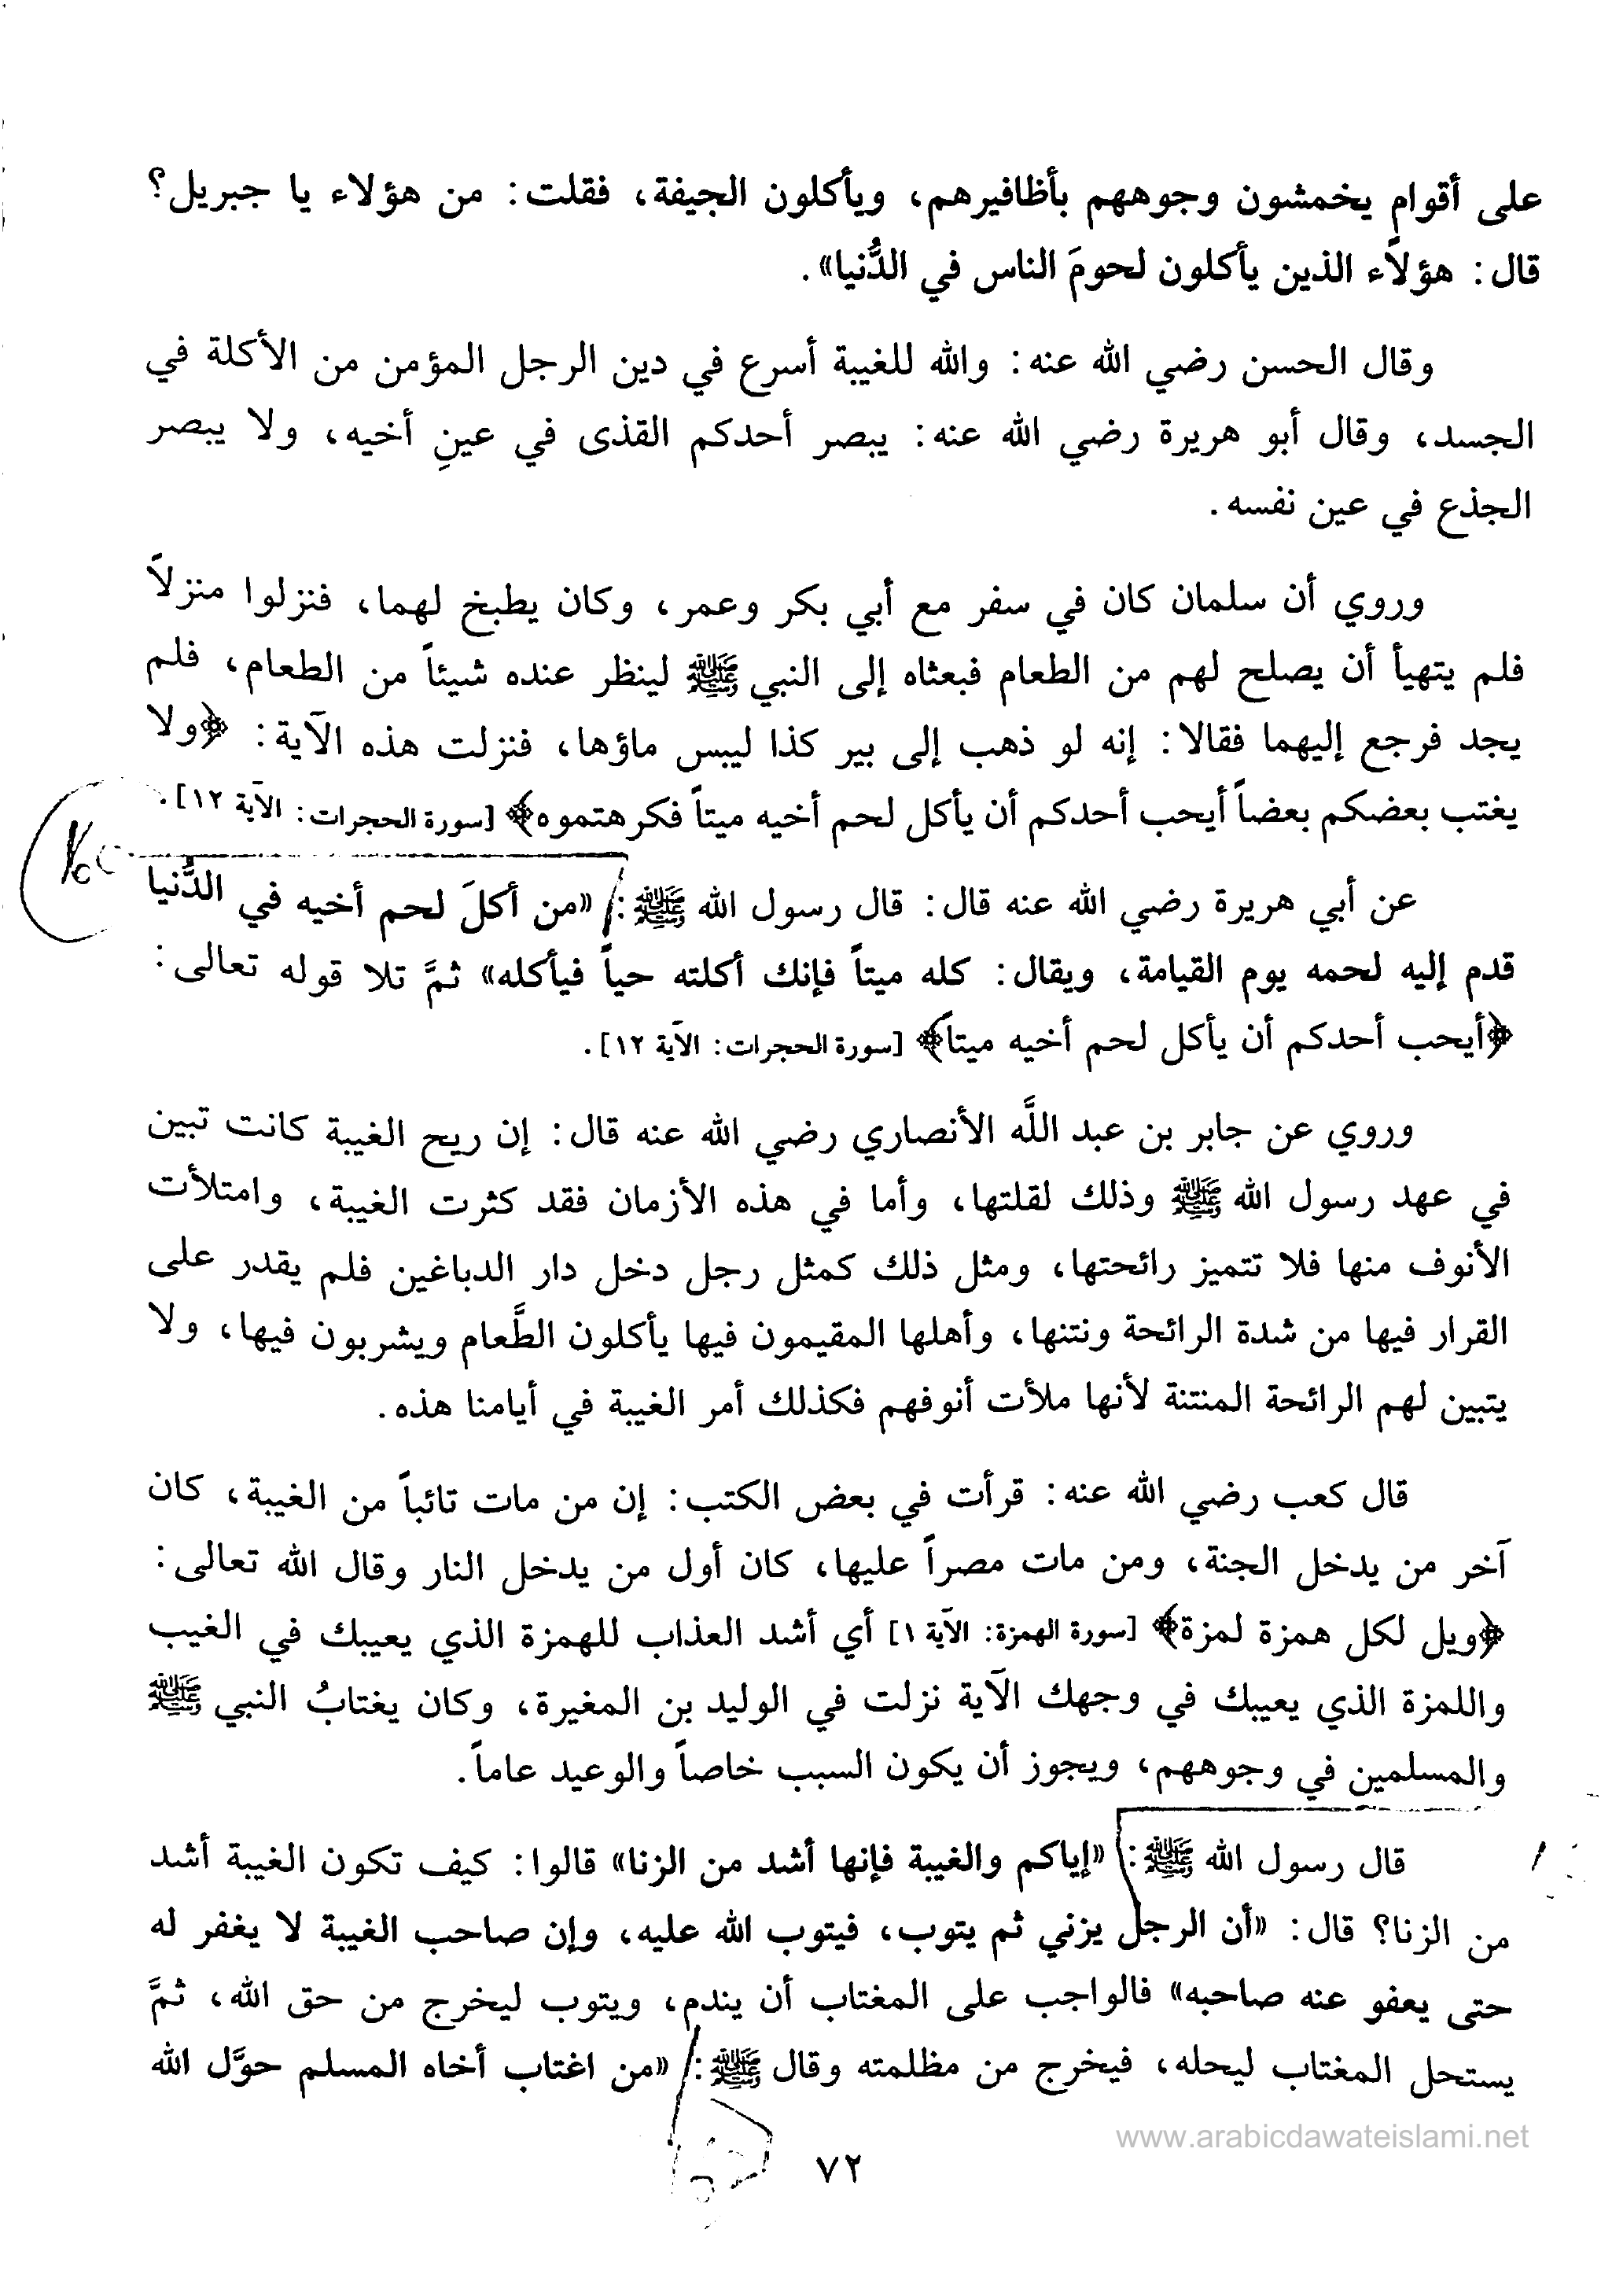 على أقوام يخمشون وجوههم بأظافيرهم، ويأكلون الجيفة، فقلت: من هؤلاء يا جبريل؟
قال: هؤلاء الذين يأكلون لحومَ الناس في الدُّنيا».
وقال الحسن رضي الله عنه: والله للغيبة أسرع في دين الرجل المؤمن من الأكلة في
الجسد، وقال أبو هريرة رضي الله عنه: يبصر أحدكم القذى في عينِ أخيه، ولا يبصر
الجذع في عين نفسه.
وروي أن سلمان كان في سفر مع أبي بكر وعمر، وكان يطبخ لهما، فنزلوا منزلاً
فلم يتهيأ أن يصلح لهم من الطعام فبعثاه إلى النبي ﷺ لينظر عنده شيئاً من الطعام، فلم
يجد فرجع إليهما فقالا: إنه لو ذهب إلى بير كذا ليبس ماؤها، فنزلت هذه الآية: ﴿ولا
يغتب بعضكم بعضاً أيحب أحدكم أن يأكل لحم أخيه ميتاً فكرهتموه﴾ [سورة الحجرات: الآية ١٢].
عن أبي هريرة رضي الله عنه قال: قال رسول الله ﷺ: «من أكلَ لحم أخيه في الدُّنيا
قدم إليه لحمه يوم القيامة، ويقال: كله ميتاً فإنك أكلته حياً فيأكله» ثمَّ تلا قوله تعالى:
﴿أيحب أحدكم أن يأكل لحم أخيه ميتاً﴾ [سورة الحجرات: الآية ١٢].
وروي عن جابر بن عبد اللَّه الأنصاري رضي الله عنه قال: إن ريح الغيبة كانت تبين
في عهد رسول الله ﷺ وذلك لقلتها، وأما في هذه الأزمان فقد كثرت الغيبة، وامتلأت
الأنوف منها فلا تتميز رائحتها، ومثل ذلك كمثل رجل دخل دار الدباغين فلم يقدر على
القرار فيها من شدة الرائحة ونتنها، وأهلها المقيمون فيها يأكلون الطَّعام ويشربون فيها، ولا
يتبين لهم الرائحة المنتنة لأنها ملأت أنوفهم فكذلك أمر الغيبة في أيامنا هذه.
قال كعب رضي الله عنه: قرأت في بعض الكتب: إن من مات تائباً من الغيبة، كان
آخر من يدخل الجنة، ومن مات مصراً عليها، كان أول من يدخل النار وقال الله تعالى:
﴿ويل لكل همزة لمزة﴾ [سورة الهمزة: الآية ١] أي أشد العذاب للهمزة الذي يعيبك في الغيب
واللمزة الذي يعيبك في وجهك الآية نزلت في الوليد بن المغيرة، وكان يغتابُ النبي ﷺ
والمسلمين في وجوههم، ويجوز أن يكون السبب خاصاً والوعيد عاماً.
قال رسول الله ﷺ: «إياكم والغيبة فإنها أشد من الزنا» قالوا: كيف تكون الغيبة أشد
من الزنا؟ قال: «أن الرجل يزني ثم يتوب، فيتوب الله عليه، وإن صاحب الغيبة لا يغفر له
حتى يعفو عنه صاحبه» فالواجب على المغتاب أن يندم، ويتوب ليخرج من حق الله، ثمَّ
يستحل المغتاب ليحله، فيخرج من مظلمته وقال ﷺ: «من اغتاب أخاه المسلم حوَّل الله
www.arabicdawateislami.net
٧٢